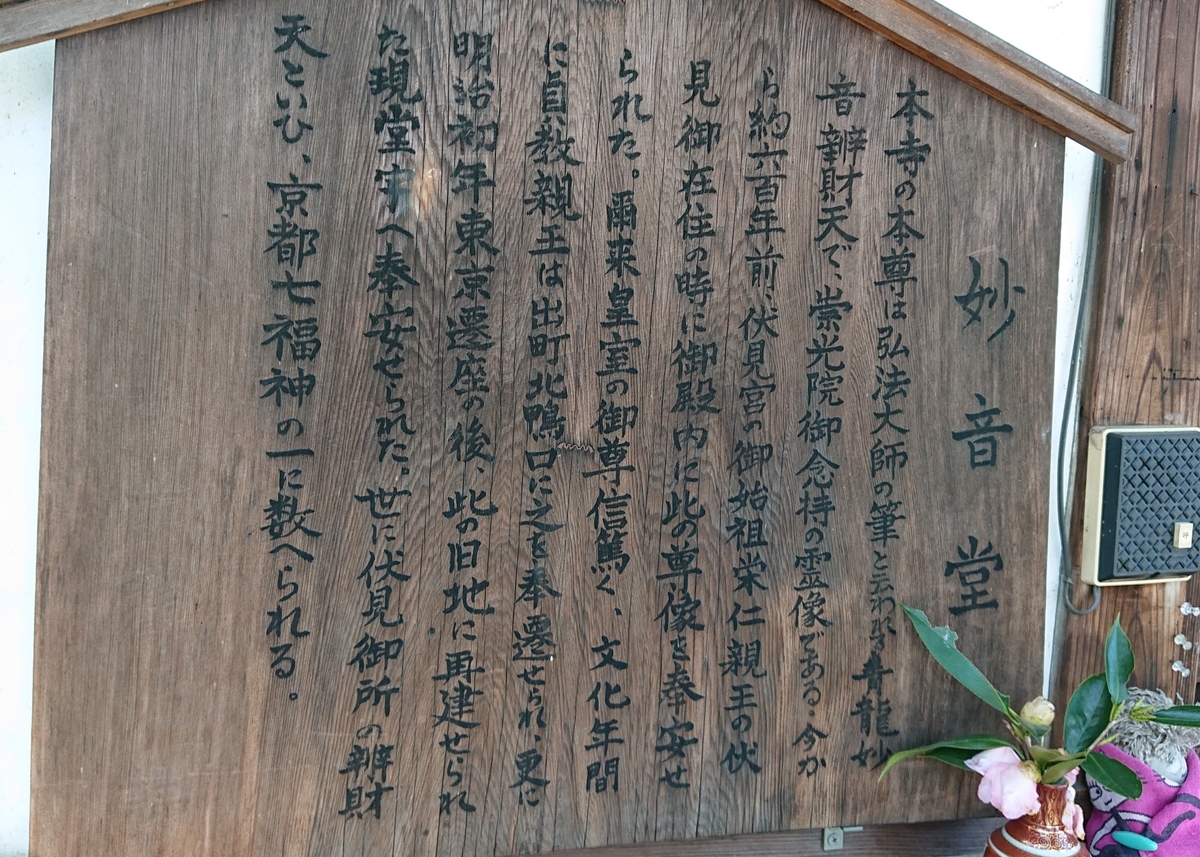 妙音堂
本寺の本尊は弘法大師の筆と云われる青龍妙
音辨財天で、崇光院御念持の霊像である。今か
ら約六百年前、伏見宮の御始祖栄仁親王の伏
見御在住の時に御殿内に此の尊像を奉安せ
られた。爾来皇室の御尊信篤く、文化年間
に貞教親王は出町北鴨口に之を奉遷せられ、更に
明治初年東京遷座の後、此の旧地に再建せられ
た現堂宇へ奉安せられた。世に伏見御所の辨財
天といひ、京都七福神の一に数へられる。